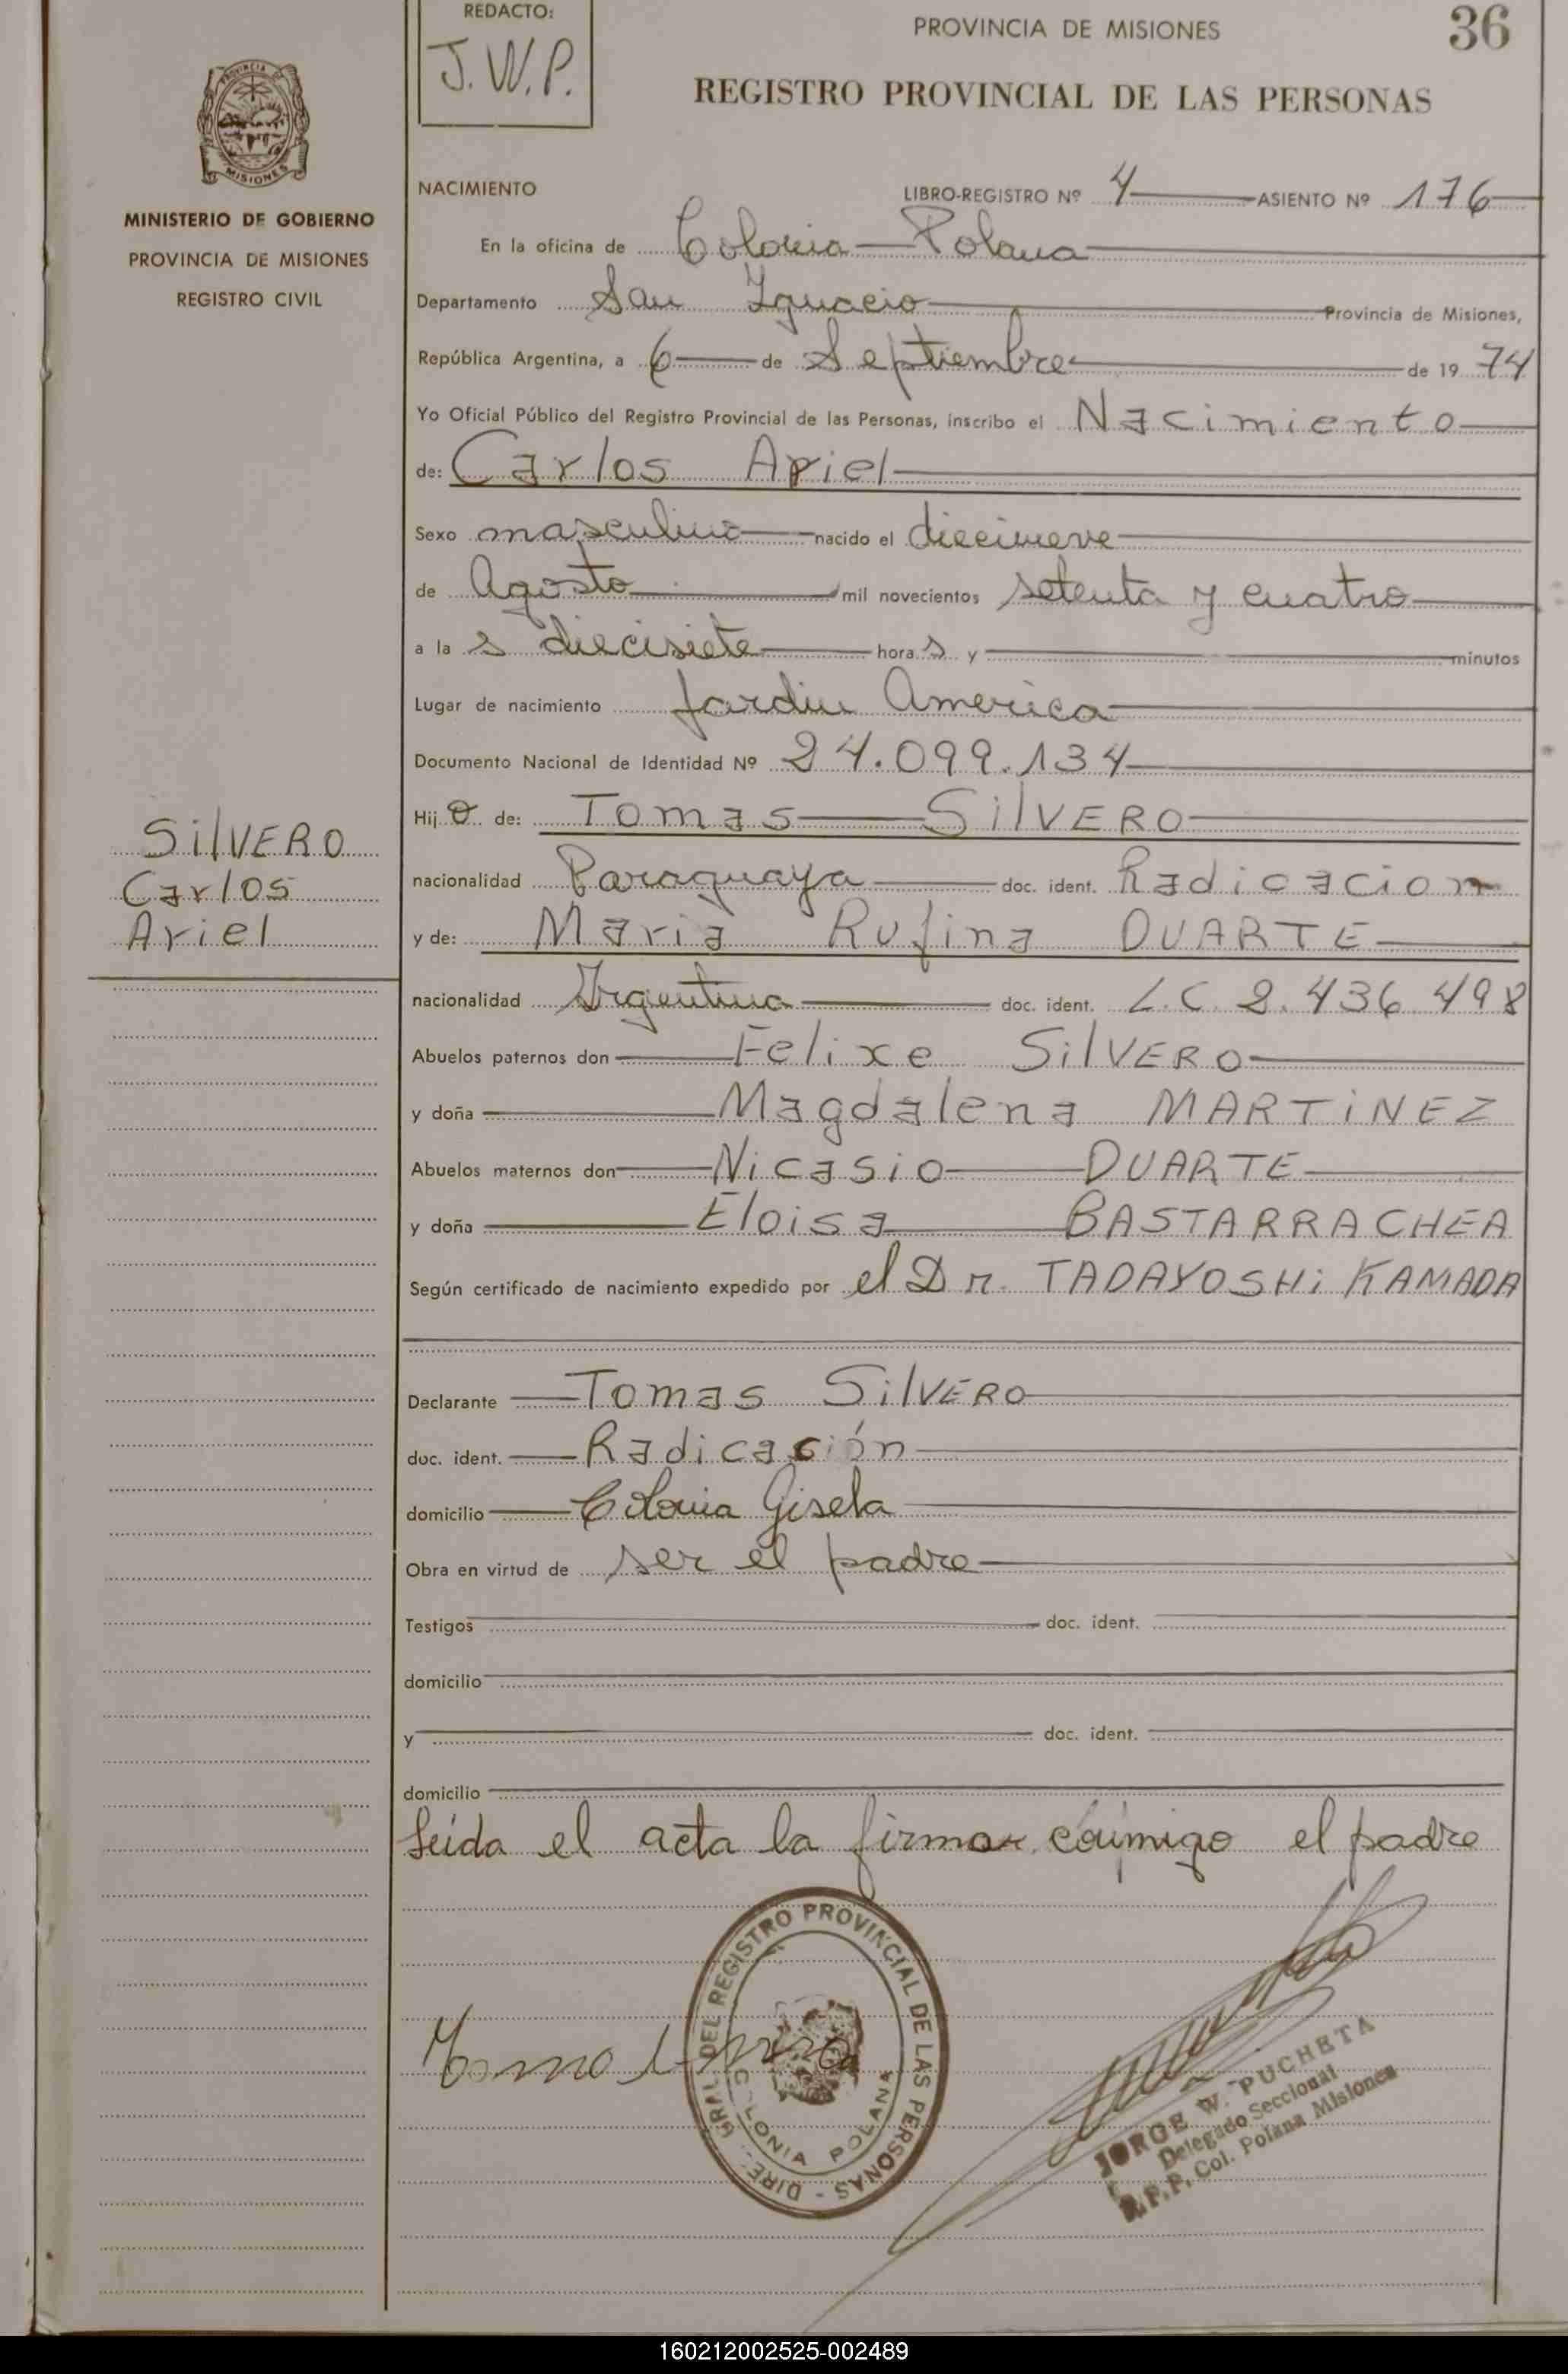 REDACTO:
J.W.P.
PROVINCIA DE MISIONES
36
REGISTRO PROVINCIAL DE LAS PERSONAS
PROVINCIA DE
MISIONES
MINISTERIO DE GOBIERNO
PROVINCIA DE MISIONES
REGISTRO CIVIL
NACIMIENTO LIBRO-REGISTRO Nº 4 ASIENTO Nº 176
En la oficina de Colonia Polana
Departamento San Ignacio Provincia de Misiones,
República Argentina, a 6 de Septiembre de 1974
Yo Oficial Público del Registro Provincial de las Personas, inscribo el Nacimiento
de: Carlos Ariel
Sexo masculino nacido el diecinueve
de Agosto mil novecientos setenta y cuatro
a la s diecisiete hora s y minutos
Lugar de nacimiento Jardin America
Documento Nacional de Identidad Nº 24.099.134
Hij o de: Tomas SilVERO
SilVERO
Carlos
Ariel
nacionalidad Paraguaya doc. ident. Radicacion
y de: Maria Rufina DUARTE
nacionalidad Argentina doc. ident. L.C. 2.436.498
Abuelos paternos don Felixe SilVERO
y doña Magdalena MARTiNEZ
Abuelos maternos don Nicasio DUARTE
y doña Eloisa BASTARRACHEA
Según certificado de nacimiento expedido por el Dr. TADAYOSHi KAMADA
Declarante Tomas SilVERO
doc. ident. Radicación
domicilio Colonia Gisela
Obra en virtud de ser el padre
Testigos doc. ident.
domicilio
y doc. ident.
domicilio
Leida el acta la firmar conmigo el padre
DIRE. GRAL. DEL REGISTRO PROVINCIAL DE LAS PERSONAS -
COLONIA POLANA
JORGE W. PUCHETA
Delegado Seccional
R.P.P. Col. Polana Misiones
160212002525-002489